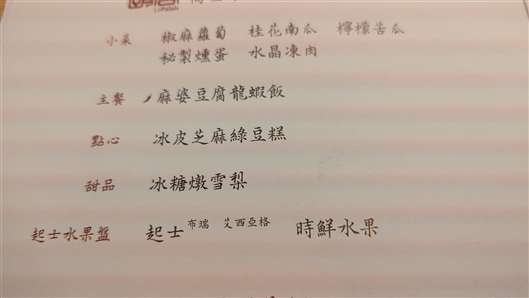 小菜 椒麻蘿蔔 桂花南瓜 檸檬苦瓜
秘製燻蛋 水晶凍肉
主餐 麻婆豆腐龍蝦飯
點心 冰皮芝麻綠豆糕
甜品 冰糖燉雪梨
起士水果盤 起士 布瑞 艾西亞格 時鮮水果